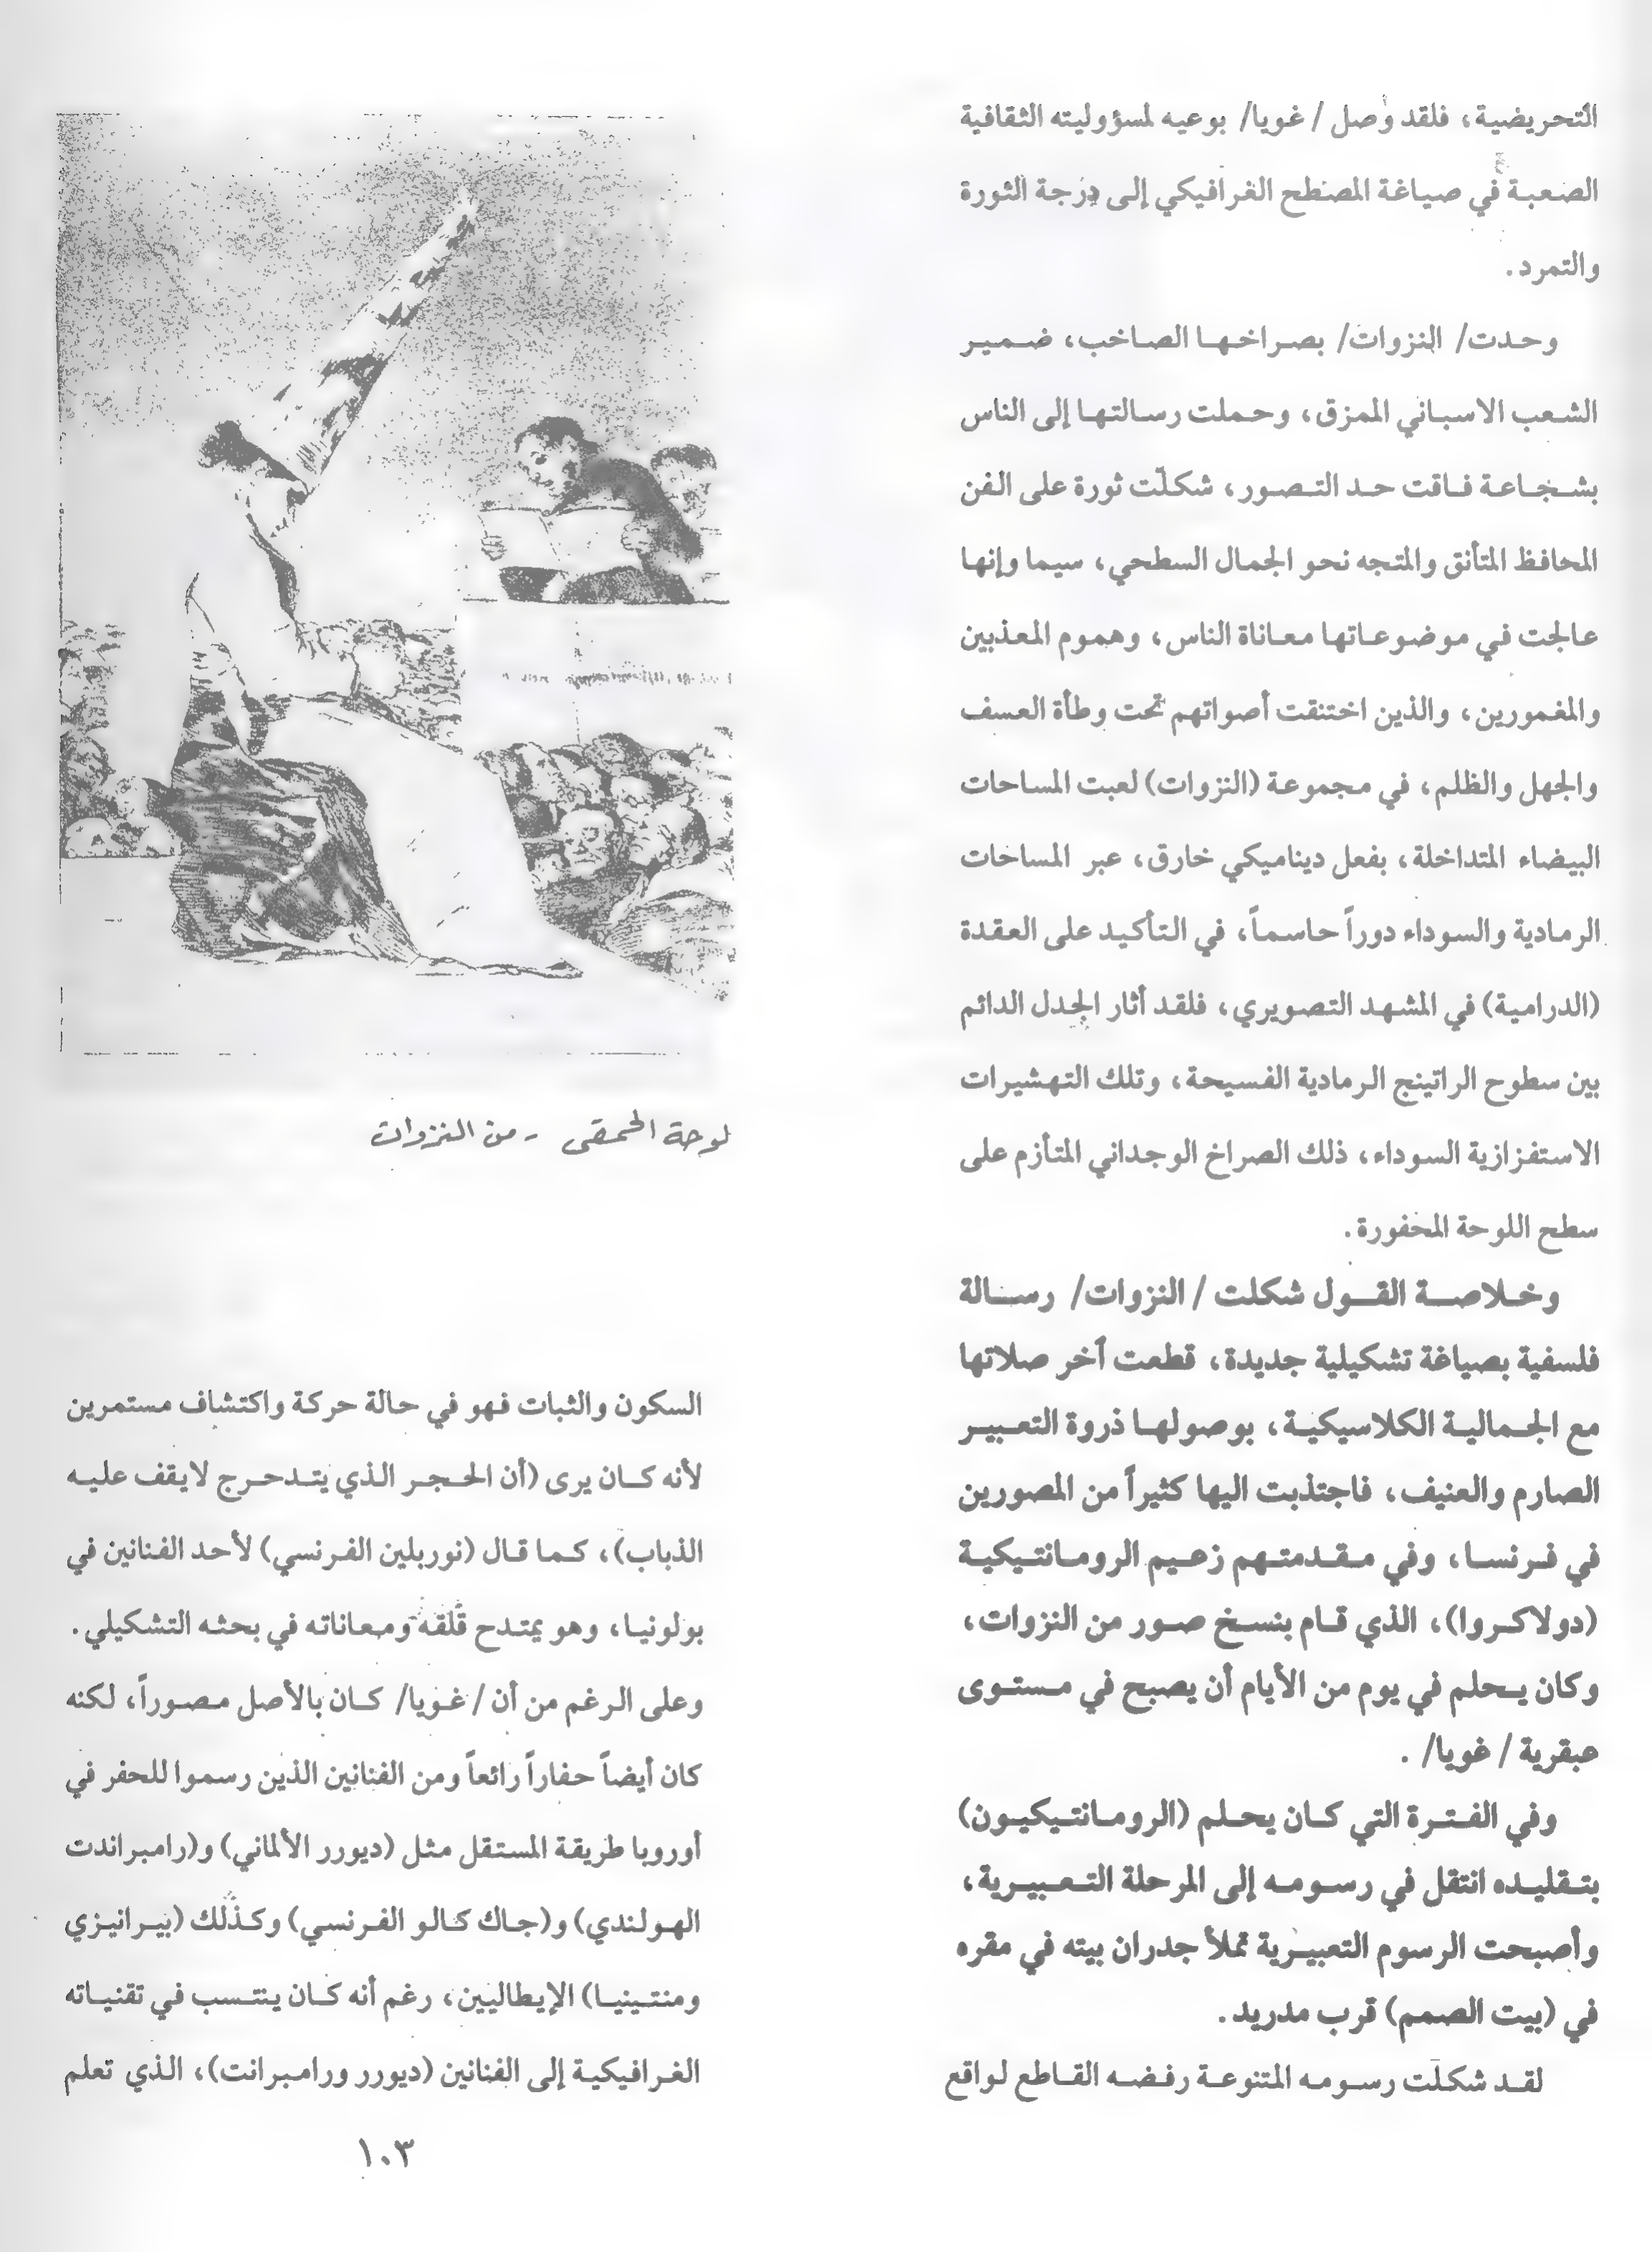 التحريضية، فلقد وصل / غويا/ بوعيه لمسؤوليته الثقافية
الصعبة في صياغة المصطلح الغرافيكي إلى درجة الثورة
والتمرد.
وحدت/ النزوات/ بصراخها الصاخب، ضمير
الشعب الاسباني الممزق، وحملت رسالتها إلى الناس
بشجاعة فاقت حد التصور، شكلّت ثورة على الفن
المحافظ المتأنق والمتجه نحو الجمال السطحي، سيما وإنها
عالجت في موضوعاتها معاناة الناس، وهموم المعذبين
والمغمورين، والذين اختنقت أصواتهم تحت وطأة العسف
والجهل والظلم، في مجموعة (النزوات) لعبت المساحات
البيضاء المتداخلة، بفعل ديناميكي خارق، عبر المساحات
الرمادية والسوداء دوراً حاسماً، في التأكيد على العقدة
(الدرامية) في المشهد التصويري، فلقد أثار الجدل الدائم
بين سطوح الراتينج الرمادية الفسيحة، وتلك التهشيرات
الاستفزازية السوداء، ذلك الصراخ الوجداني المتأزم على
سطح اللوحة المحفورة.
وخلاصة القول شكلت / النزوات/ رسالة
فلسفية بصياغة تشكيلية جديدة، قطعت آخر صلاتها
مع الجمالية الكلاسيكية، بوصولها ذروة التعبير
الصارم والعنيف، فاجتذبت اليها كثيراً من المصورين
في فرنسا، وفي مقدمتهم زعيم الرومانتيكية
(دولاكروا)، الذي قام بنسخ صور من النزوات،
وكان يحلم في يوم من الأيام أن يصبح في مستوى
عبقرية / غويا/ .
وفي الفترة التي كان يحلم (الرومانتيكيون)
بتقليده انتقل في رسومه إلى المرحلة التعبيرية،
وأصبحت الرسوم التعبيرية تملأ جدران بيته في مقره
في (بيت الصمم) قرب مدريد.
لقد شكلّت رسومه المتنوعة رفضه القاطع لواقع
لوحة الحمقى - من النزوات
السكون والثبات فهو في حالة حركة واكتشاف مستمرين
لأنه كان يرى (أن الحجر الذي يتدحرج لايقف عليه
الذباب)، كما قال (نوربلين الفرنسي) لأحد الفنانين في
بولونيا، وهو يمتدح قلقه ومعاناته في بحثه التشكيلي.
وعلى الرغم من أن / غويا/ كان بالأصل مصوراً، لكنه
كان أيضاً حفاراً رائعاً ومن الفنانين الذين رسموا للحفر في
أوروبا طريقة المستقل مثل (ديورر الألماني) و(رامبراندت
الهولندي) و(جاك كالو الفرنسي) وكذلك (بيرانيزي
ومنتينيا) الإيطاليين، رغم أنه كان ينتسب في تقنياته
الغرافيكية إلى الفنانين (ديورر ورامبرانت)، الذي تعلم
١٠٣